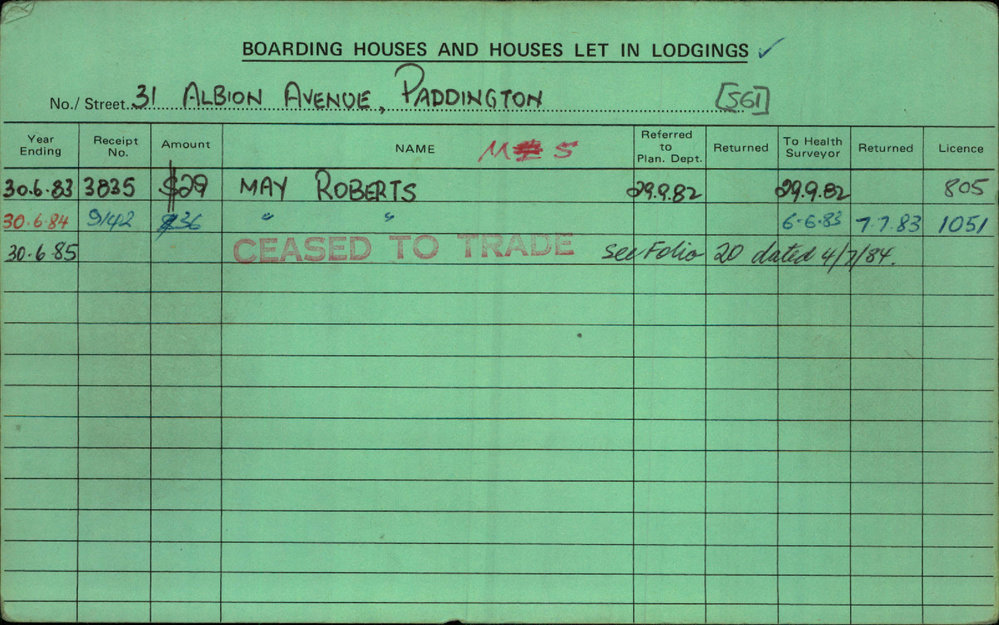 BOARDING HOUSES AND HOUSES LET IN LODGINGS ✓
No./ Street 31 ALBION AVENUE, PADDINGTON [561]
Year Ending Receipt No. Amount NAME M 5 Referred to Plan. Dept. Returned To Health Surveyor Returned Licence
30.6.83 3835 $29 MAY ROBERTS 29.9.82 29.9.82 805
30.6.84 9142 $36 " " 6-6-83 7.7.83 1051
30.6.85 CEASED TO TRADE See Folio 20 dated 4/7/84.